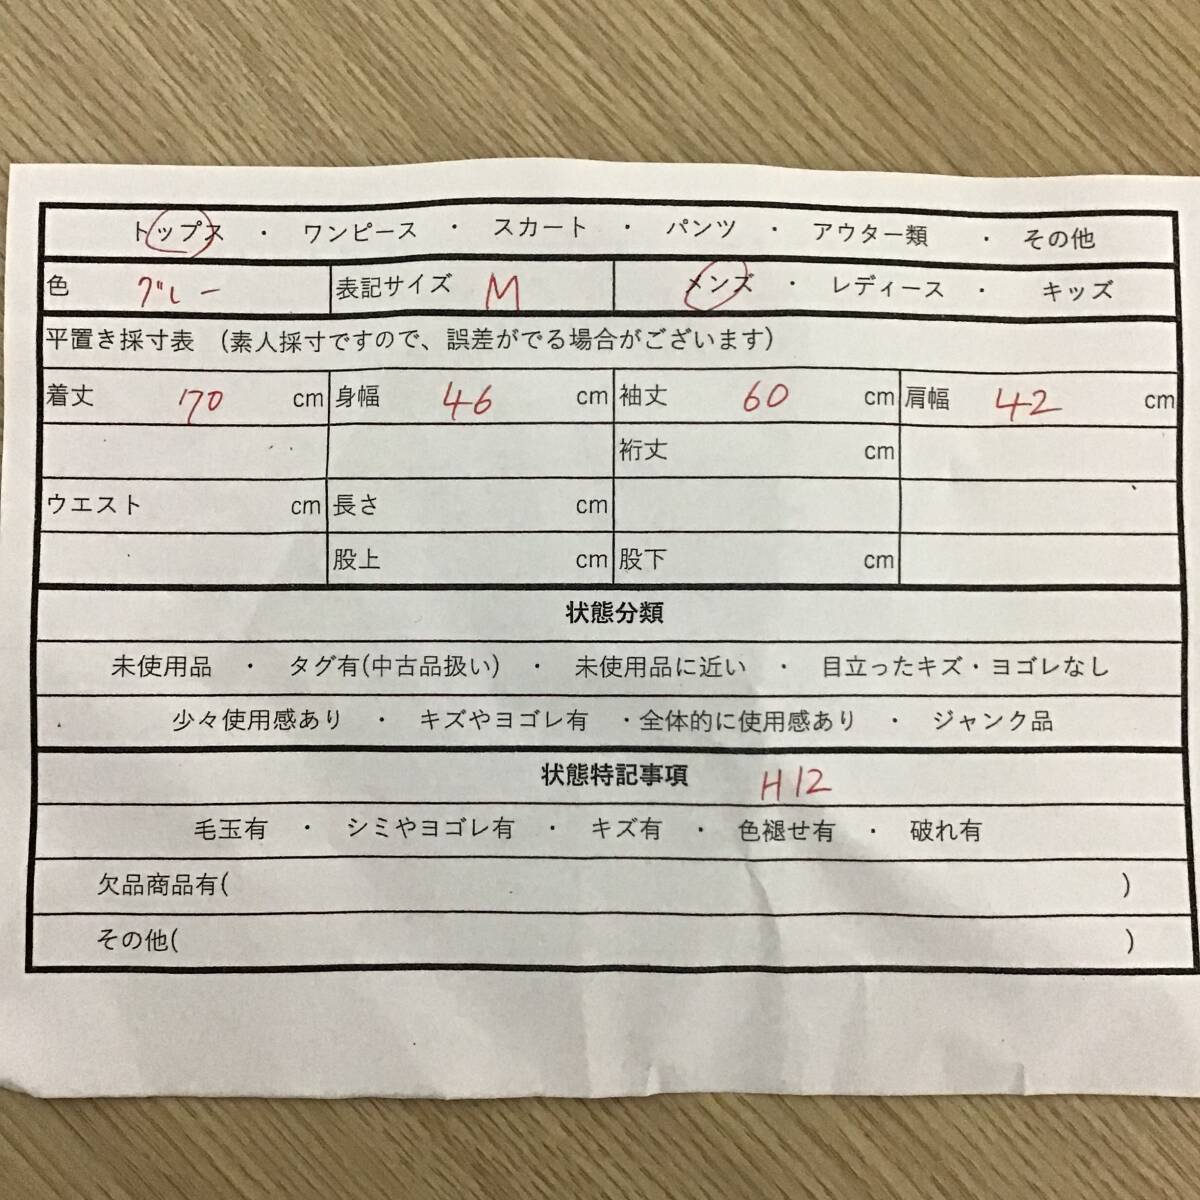 トップス ・ ワンピース ・ スカート ・ パンツ ・ アウター類 ・ その他
色 グレー 表記サイズ M メンズ ・ レディース ・ キッズ
平置き採寸表 (素人採寸ですので、誤差がでる場合がございます)
着丈 70 cm 身幅 46 cm 袖丈 60 cm 肩幅 42 cm
裄丈 cm
ウエスト cm 長さ cm
股上 cm 股下 cm
状態分類
未使用品 ・ タグ有(中古品扱い) ・ 未使用品に近い ・ 目立ったキズ・ヨゴレなし
少々使用感あり ・ キズやヨゴレ有 ・全体的に使用感あり ・ ジャンク品
状態特記事項 H12
毛玉有 ・ シミやヨゴレ有 ・ キズ有 ・ 色褪せ有 ・ 破れ有
欠品商品有( )
その他( )